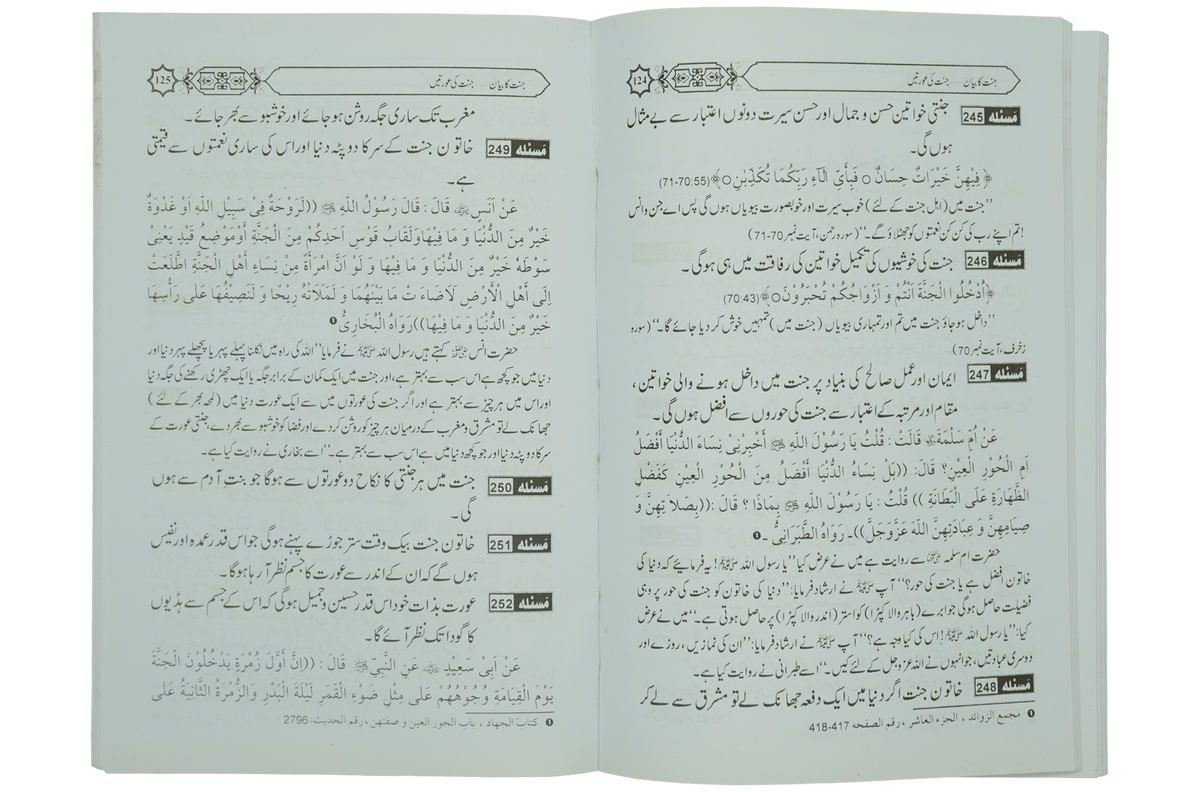 جنت کا بیان ..... جنت کی عورتیں
124
مسئلہ 245 جنتی خواتین حسن و جمال اور حسن سیرت دونوں اعتبار سے بے مثال
ہوں گی۔
﴿ فِيهِنَّ خَيْرَاتٌ حِسَانٌ ○ فَبِأَيِّ الَآءِ رَبِّكُمَا تُكَذِّبٰنِ ○ ﴾ (55:70-71)
’’جنت میں (اہل جنت کے لئے) خوب سیرت اور خوبصورت بیویاں ہوں گی پس اے جن وانس
!تم اپنے رب کی کن کن نعمتوں کو جھٹلاؤ گے۔‘‘ (سورہ رحمن، آیت نمبر 70-71)
مسئلہ 246 جنت کی خوشیوں کی تکمیل خواتین کی رفاقت میں ہی ہوگی۔
﴿ اُدْخُلُوا الْجَنَّةَ اَنْتُمْ وَ اَزْوَاجُكُمْ تُحْبَرُوْنَ ○ ﴾ (70:43)
’’داخل ہو جاؤ جنت میں تم اور تمہاری بیویاں (جنت میں) تمہیں خوش کر دیا جائے گا۔‘‘ (سورہ
زخرف، آیت نمبر 70)
مسئلہ 247 ایمان اور عمل صالح کی بنیاد پر جنت میں داخل ہونے والی خواتین،
مقام اور مرتبہ کے اعتبار سے جنت کی حوروں سے افضل ہوں گی۔
عَنْ اُمِّ سَلَمَةَ قَالَتْ : قُلْتُ يَا رَسُوْلَ اللّٰهِ ﷺ أَخْبِرْنِىْ نِسَاءُ الدُّنْيَا أَفْضَلُ
اَمِ الْحُوْرِ الْعِيْنِ؟ قَالَ: ((بَلْ نِسَاءُ الدُّنْيَا أَفْضَلُ مِنَ الْحُوْرِ الْعِيْنِ كَفَضْلِ
الظَّهَارَةِ عَلَى الْبَطَانَةِ )) قُلْتُ : يَا رَسُوْلَ اللّٰهِ ﷺ بِمَاذَا ؟ قَالَ :((بِصَلَاتِهِنَّ وَ
صِيَامِهِنَّ وَ عِبَادَتِهِنَّ اللّٰهَ عَزَّوَجَلَّ))۔ رَوَاهُ الطَّبَرَانِىُّ ۔❶
حضرت ام سلمہ ؓ سے روایت ہے میں نے عرض کیا ’’یا رسول اللہ ﷺ! یہ فرمائیے کہ دنیا کی
خاتون افضل ہے یا جنت کی حور؟‘‘ آپ ﷺ نے ارشاد فرمایا: ’’دنیا کی خاتون کو جنت کی حور پر وہی
فضیلت حاصل ہوگی جو ابرے (باہر والا کپڑا) کو استر (اندر والا کپڑا) پر حاصل ہوتی ہے۔‘‘ میں نے عرض
کیا: ’’یا رسول اللہ ﷺ! اس کی کیا وجہ ہے؟‘‘ آپ ﷺ نے ارشاد فرمایا: ’’ان کی نمازیں، روزے اور
دوسری عبادتیں، جو انہوں نے اللہ عزوجل کے لئے کیں۔‘‘ اسے طبرانی نے روایت کیا ہے۔
مسئلہ 248 خاتون جنت اگر دنیا میں ایک دفعہ جھانک لے تو مشرق سے لے کر
❶ مجمع الزوائد ، الجزء العاشر ، رقم الصفحه 417-418
جنت کا بیان ..... جنت کی عورتیں
125
مغرب تک ساری جگہ روشن ہو جائے اور خوشبو سے بھر جائے۔
مسئلہ 249 خاتون جنت کے سر کا دوپٹہ دنیا اور اس کی ساری نعمتوں سے قیمتی
ہے۔
عَنْ اَنَسٍ قَالَ : قَالَ رَسُوْلُ اللّٰهِ ﷺ ((لَرَوْحَةٌ فِىْ سَبِيْلِ اللّٰهِ اَوْ غَدْوَةٌ
خَيْرٌ مِنَ الدُّنْيَا وَ مَا فِيْهَا وَلَقَابُ قَوْسِ اَحَدِكُمْ مِنَ الْجَنَّةِ أَوْ مَوْضِعُ قَيْدٍ يَعْنِىْ
سَوْطَهُ خَيْرٌ مِنَ الدُّنْيَا وَ مَا فِيْهَا وَ لَوْ اَنَّ امْرَأَةً مِنْ نِسَاءِ أَهْلِ الْجَنَّةِ اطَّلَعَتْ
اِلَى أَهْلِ الْأَرْضِ لَاضَاءَتْ مَا بَيْنَهُمَا وَ لَمَلَاَتْهُ رِيْحًا وَ لَنَصِيْفُهَا عَلَى رَأْسِهَا
خَيْرٌ مِنَ الدُّنْيَا وَ مَا فِيْهَا))رَوَاهُ الْبُخَارِىُّ❶
حضرت انس ؓ کہتے ہیں رسول اللہ ﷺ نے فرمایا ’’اللہ کی راہ میں نکلنا پہلے پہر یا پچھلے پہر دنیا اور
دنیا میں جو کچھ ہے اس سب سے بہتر ہے، اور جنت میں ایک کمان کے برابر جگہ یا ایک چھڑی رکھنے کی جگہ دنیا
اور اس میں ہر چیز سے بہتر ہے اور اگر جنت کی عورتوں میں سے ایک عورت دنیا میں (لمحہ بھر کے لئے)
جھانک لے تو مشرق و مغرب کے درمیان ہر چیز کو روشن کردے اور فضا کو خوشبو سے بھر دے، جنتی عورت کے
سر کا دوپٹہ دنیا اور جو کچھ دنیا میں ہے اس سب سے بہتر ہے۔‘‘ اسے بخاری نے روایت کیا ہے۔
مسئلہ 250 جنت میں ہر جنتی کا نکاح دو عورتوں سے ہوگا جو بنتِ آدم سے ہوں
گی۔
مسئلہ 251 خاتون جنت بیک وقت ستر جوڑے پہنے ہوگی جو اس قدر عمدہ اور نفیس
ہوں گے کہ ان کے اندر سے عورت کا جسم نظر آ رہا ہوگا۔
مسئلہ 252 عورت بذات خود اس قدر حسین و جمیل ہوگی کہ اس کے جسم سے ہڈیوں
کا گودا تک نظر آئے گا۔
عَنْ اَبِىْ سَعِيْدٍ عَنِ النَّبِىِّ ﷺ قَالَ : ((اِنَّ أَوَّلَ زُمْرَةٍ يَدْخُلُوْنَ الْجَنَّةَ
يَوْمَ الْقِيَامَةِ وُجُوْهُهُمْ عَلَى مِثْلِ ضَوْءِ الْقَمَرِ لَيْلَةَ الْبَدْرِ وَالزُّمْرَةُ الثَّانِيَةُ عَلَى
❶ كتاب الجهاد ، باب الحور العين و صفتهن ، رقم الحديث: 2796